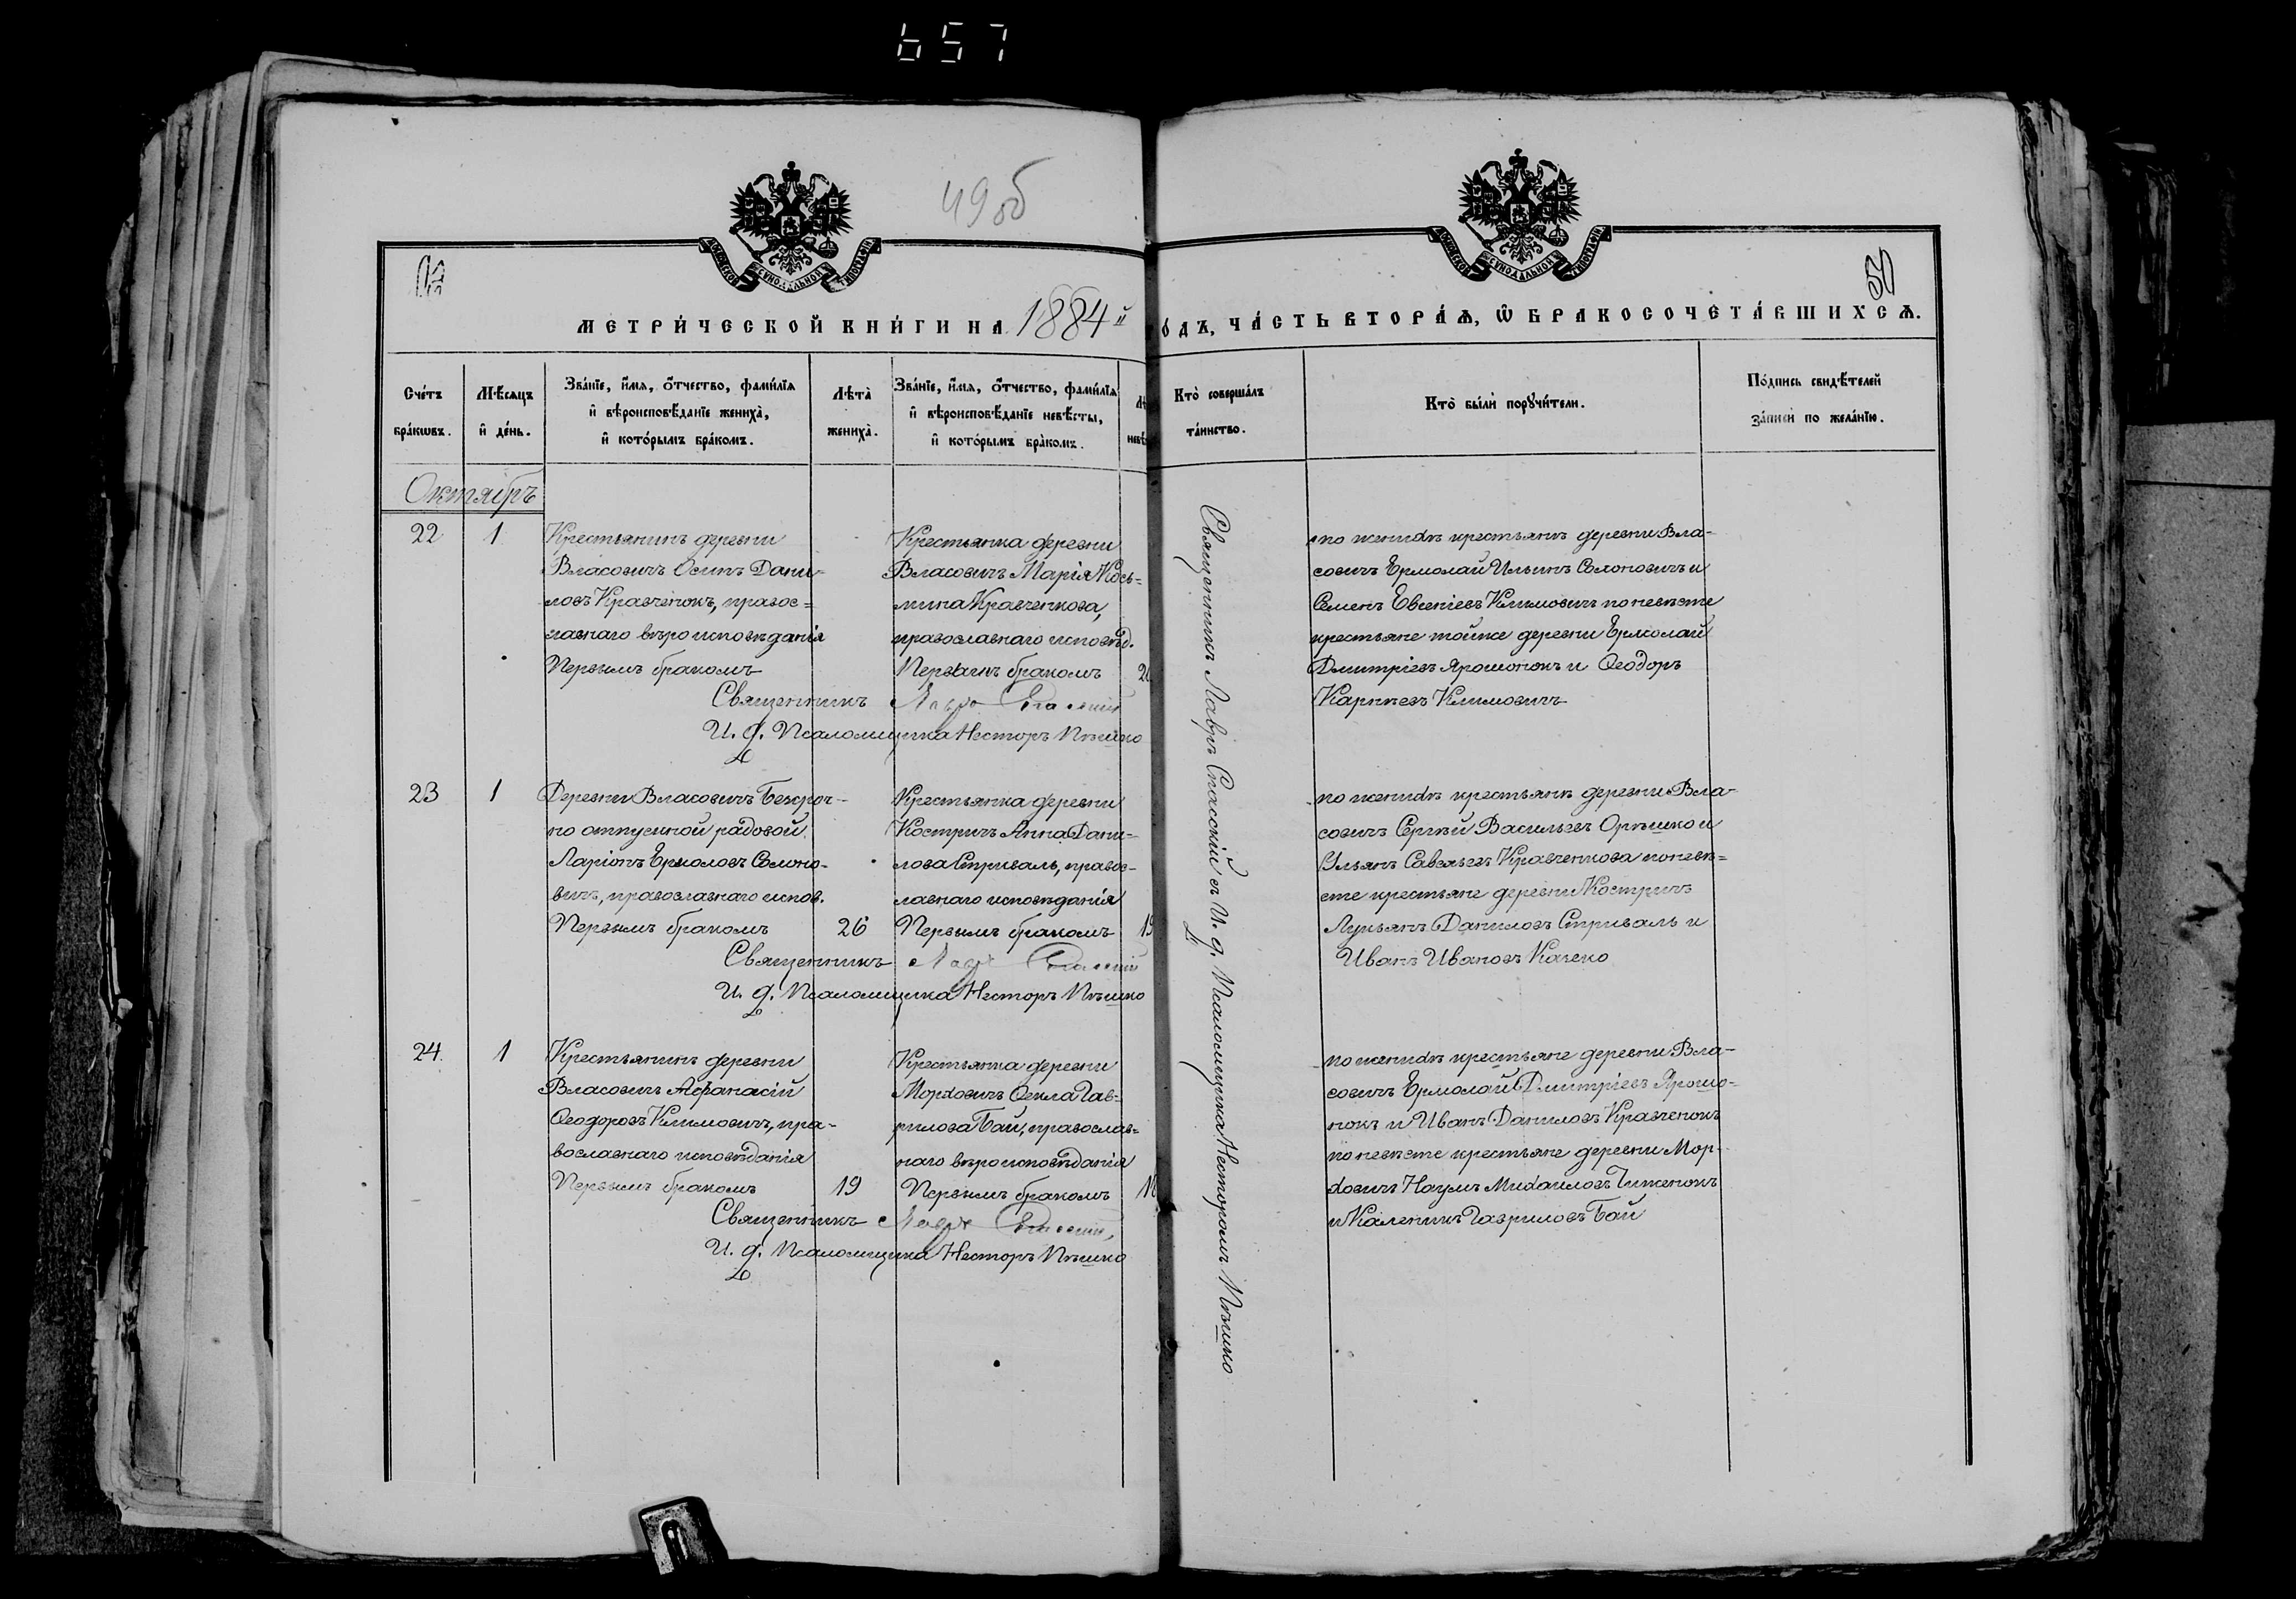 657
49об
50
МЕТРИ́ЧЕСКОЙ КНИ́ГИ НА 1884й
О́ДЪ, ЧА́СТЬ ВТОРА́Ѧ, Ѡ҆ БРАКОСОЧЕТА́ВШИХСѦ.
Сче́тъ бра́кѡвъ.
Мѣ́сѧцъ и҆ де́нь.
Зва́нїе, и҆́мѧ, ѻ҆́тчество, фами́лїѧ
и҆ вѣроисповѣ́данїе жениха̀,
и҆ кото́рымъ бра́комъ.
Лѣта̀ жениха̀.
Зва́нїе, и҆́мѧ, ѻ҆́тчество, фами́лїѧ
и҆ вѣроисповѣ́данїе невѣ́сты,
и҆ кото́рымъ бра́комъ.
Кто̀ соверша́лъ та́инство.
Кто̀ бы́ли порꙋчи́тели.
По́дпись свидѣ́телей
за́писи по жела́нїю.
Октябрь
22
1
Крестьянинъ деревни
Власовичъ Осипъ Дани-
ловъ Кравченокъ, правос=
лавнаго вѣроисповѣданія
Первымъ бракомъ
Крестьянка деревни
Власовичъ Марія Кось=
мина Кравченкова,
православнаго исповѣд.
Первымъ бракомъ
20
Священникъ Лавръ Спасскій
И. д. Псаломщика Несторъ Пѣшко
по женихѣ крестьянѣ деревни Вла-
совичъ Ермолай Ильинъ Солоновичъ и
Семенъ Евсеніевъ Климовичъ по невѣсте
крестьяне тойже деревни Ермолай
Дмитріевъ Ярошонокъ и Ѳеодоръ
Карпиевъ Климовичъ
23
1
Деревни Власовичъ Безсроч-
но отпускной радовой
Ларіонъ Ермоловъ Солоно-
вичъ, православнаго испов.
Первымъ бракомъ
26
Крестьянка деревни
Костричъ Анна Дани-
лова Стриваль, правос-
лавнаго исповѣданія
Первымъ бракомъ
19
Священникъ Лавръ Спасскій
И. д. Псаломщика Несторъ Пѣшко
по женихѣ крестьянѣ деревни Вла-
совичъ Сергѣй Васильевъ Орѣшко и
Ульянъ Савельевъ Кравченкова по невѣ=
сте крестьяне деревни Костричъ
Лукьянъ Даниловъ Стриваль и
Иванъ Ивановъ Качено
24
1
Крестьянинъ деревни
Власовичъ Афанасій
Ѳеодоровъ Климовичъ, пра-
вославнаго исповѣданія
Первымъ бракомъ
19
Крестьянка деревни
Морховичъ Ѳекла Гав=
рилова Бай, православ=
наго вѣроисповѣданія
Первымъ бракомъ
18
Священникъ Лавръ Спасскій
И. д. Псаломщика Несторъ Пѣшко
по женихѣ крестьяне деревни Вла-
совичъ Ермолай Дмитріевъ Ярошо-
нокъ и Иванъ Даниловъ Кравченокъ
по невѣсте крестьяне деревни Мор-
ховичъ Наумъ Михаиловъ Чиженокъ
и Каленикъ Гавриловъ Бай
Священникъ Лавръ Спасскій съ И. д. Псаломщика Несторомъ Пѣшко